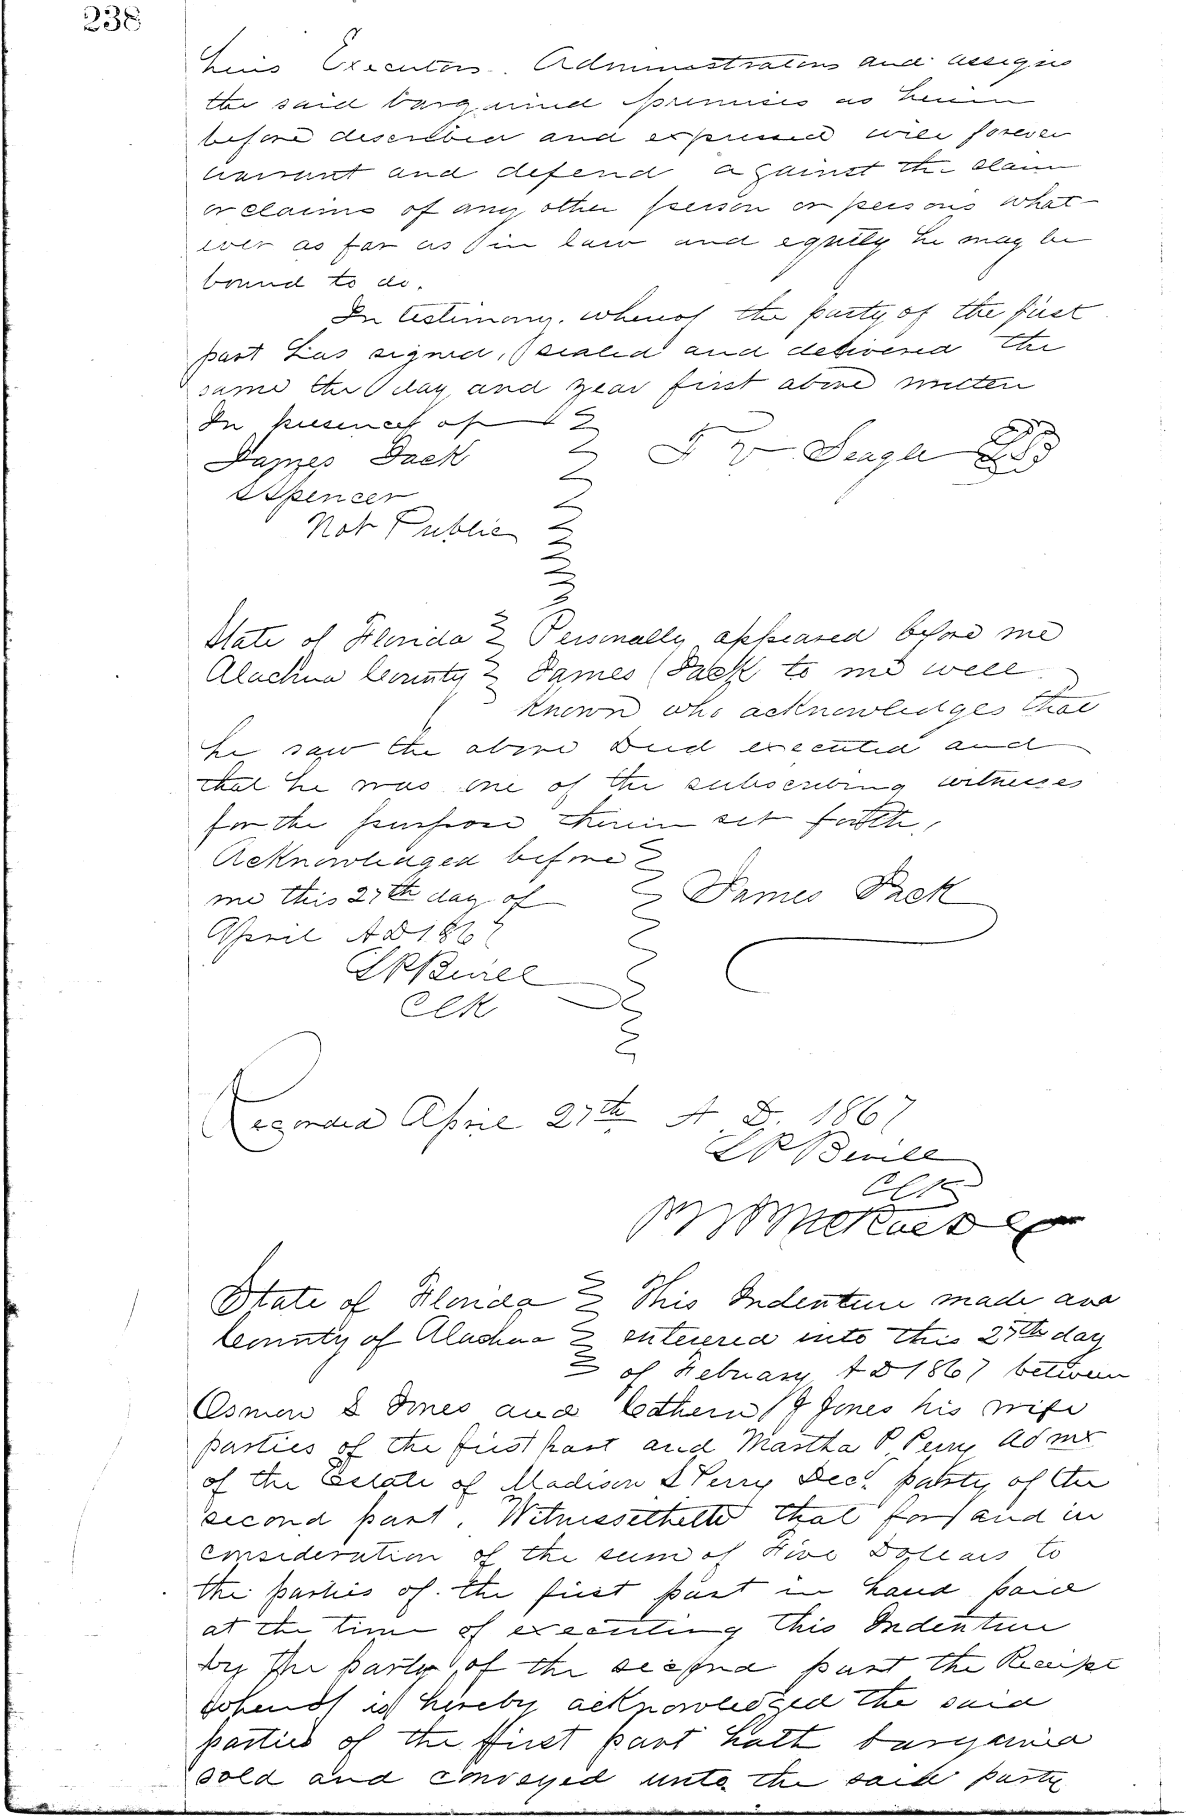 238
heirs Executors. Administrators and assigns
the said bargained premises as herein
before described and expressed will forever
warrant and defend against the claim
or claims of any other person or persons what-
ever as far as in law and equity he may be
bound to do.
In testimony. whereof the party of the first
part has signed, sealed and delivered the
same the day and year first above written
In presence of
James Pack T V Seagle
S Spencer
Not Public
State of Florida Personally appeared before me
Alachua County James Pack to me well
known who acknowledges that
he saw the above Deed executed and
that he was one of the subscribing witnesses
for the purpose therein set forth,
Acknowledged before
me this 27th day of James Pack
April A D 1867
L R Bevill
Clk
Recorded April 27th A. D. 1867
L R Bevill
Clk
McRae D C
State of Florida This Indenture made and
County of Alachua entered into this 25th day
of Febuary A D 1867 between
Osmon S Jones and Cathern J Jones his wife
parties of the first part and Martha P. Perry Admx
of the Estate of Madison S Perry Decd. party of the
second part. Witnesseth that for and in
consideration of the sum of Five Dollars to
the parties of the first part in hand paid
at the time of executing this Indenture
by the party of the second part the Receipt
whereof is hereby acknowledged the said
parties of the first part hath bargained
sold and conveyed unto the said party